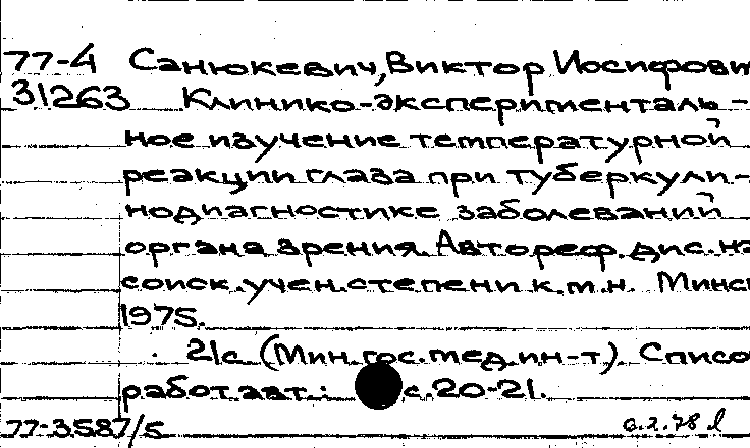 77-4 Санюкевич, Виктор Иосифови
31263 Клинико-эксперименталь-
ное изучение температурной
реакции глаза при туберкули-
нодиагностике заболеваний
органа зрения. Автореф. дис. на
соиск. учен. степени к.м.н. Минс
1975.
21с. (Мин. гос. мед. ин-т). Списо
работ авт.: с. 20-21.
77-3587/5